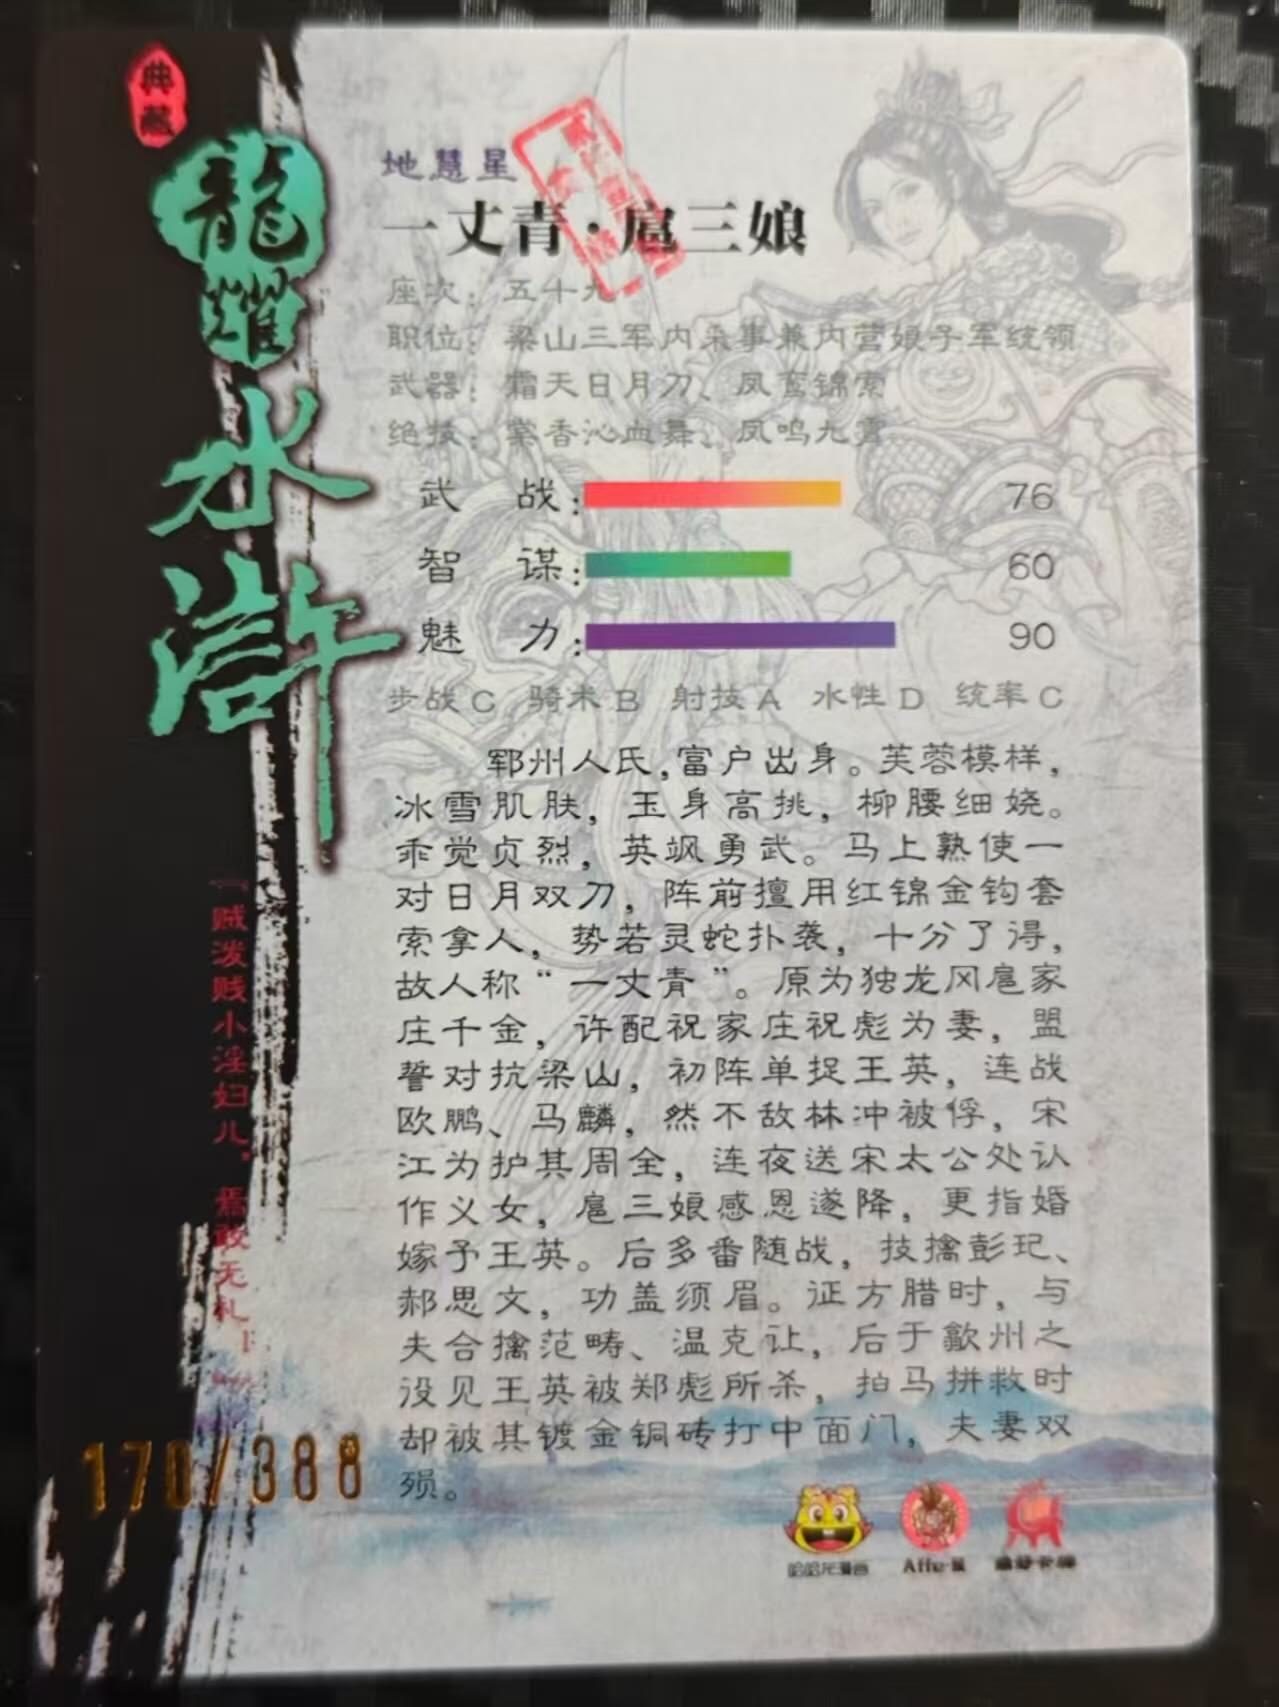 典藏
龍耀水滸
地慧星
一丈青·扈三娘
座次：五十九
职位：梁山三军内采事兼内营娘子军统领
武器：霜天日月刀、凤鸾锦索
绝技：棠香沁血舞、凤鸣九霄
武 战：76
智 谋：60
魅 力：90
步战C 骑术B 射技A 水性D 统率C
郓州人氏,富户出身。芙蓉模样，
冰雪肌肤，玉身高挑，柳腰细娆。
乖觉贞烈，英飒勇武。马上熟使一
对日月双刀，阵前擅用红锦金钩套
索拿人，势若灵蛇扑袭，十分了得，
故人称“一丈青”。原为独龙冈扈家
庄千金，许配祝家庄祝彪为妻，盟
誓对抗梁山，初阵单捉王英，连战
欧鹏、马麟，然不敌林冲被俘，宋
江为护其周全，连夜送宋太公处认
作义女，扈三娘感恩遂降，更指婚
嫁予王英。后多番随战，技擒彭玘、
郝思文，功盖须眉。征方腊时，与
夫合擒范畴、温克让，后于歙州之
没见王英被郑彪所杀，拍马拼救时
却被其镀金铜砖打中面门，夫妻双
殒。
『贼泼贱小淫妇儿，焉敢无礼！』
170/388
哈哈龙漫画